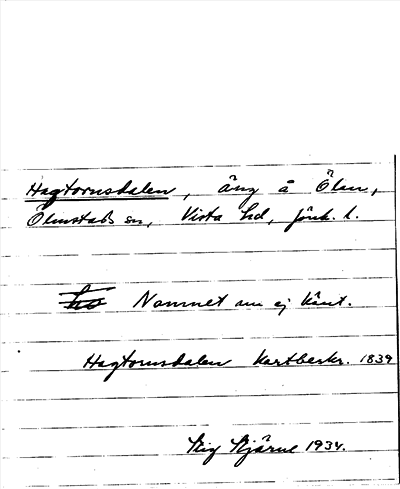 Hagtornsdalen, äng å Ölen,
Ölmstads sn, Vista hd, Jönk. l.
Namnet nu ej känt.
Hagtornsdalen Kartbeskr. 1839
Stig Stjärne 1934.